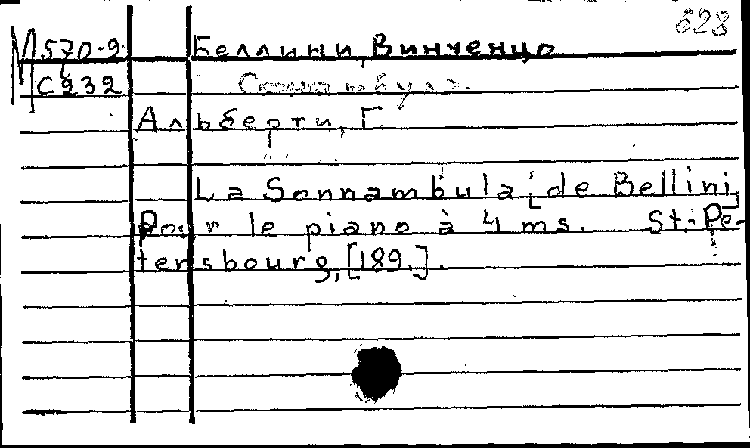 628
М 570-2 Беллини, Винченцо
С232 Сомнамбула.
Альберти, Г.
La Sonnambula [de Bellini]
pour le piano à 4 ms. St.-Pe-
tersbourg, [189.].